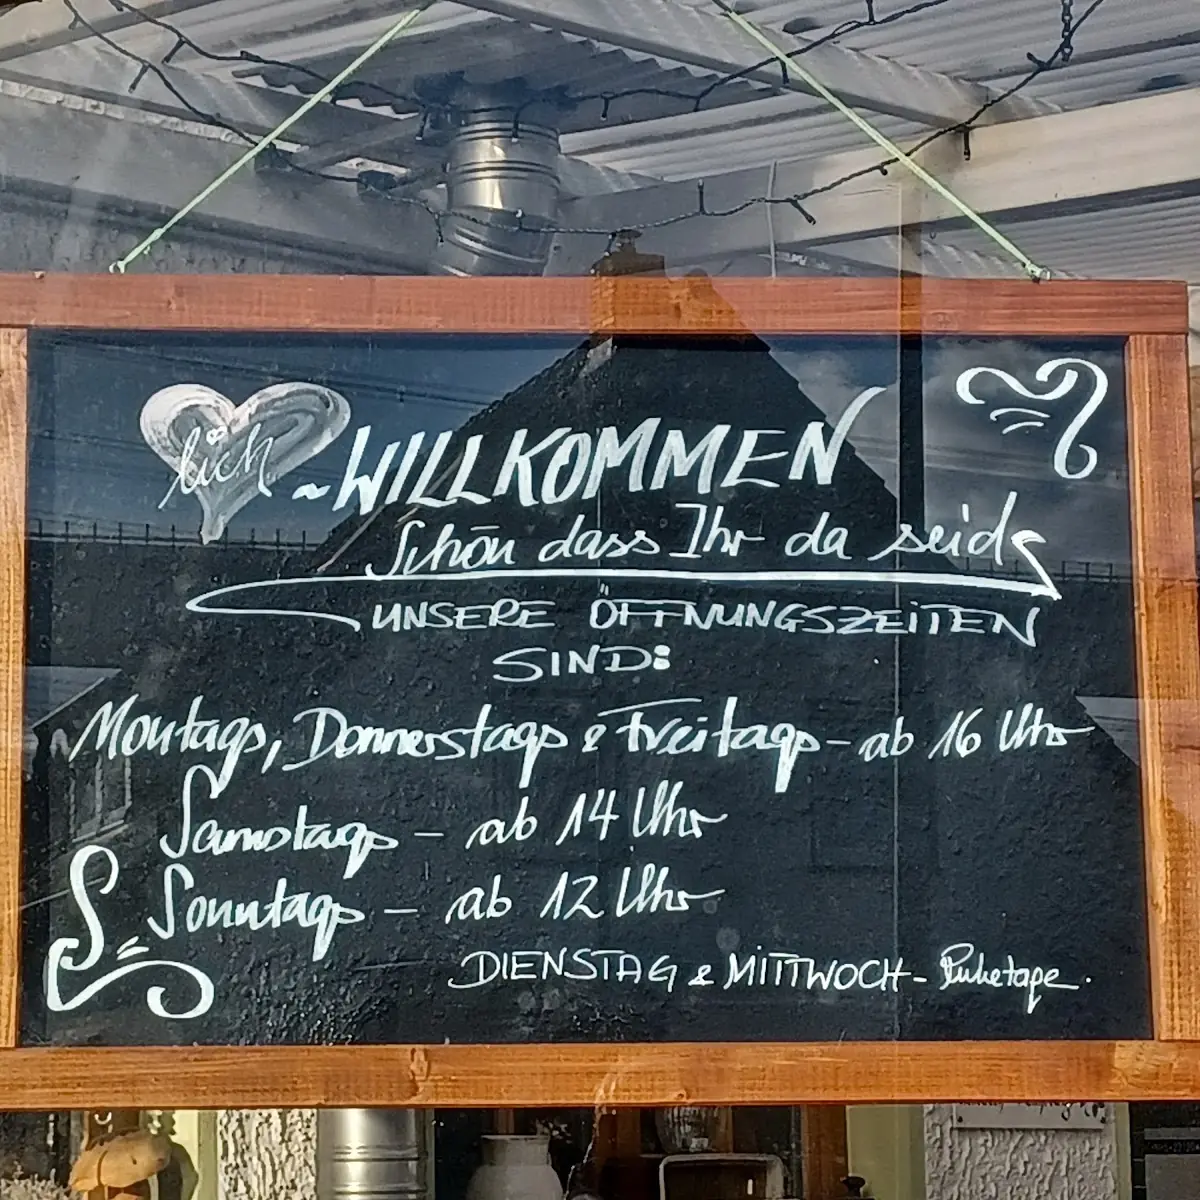 lich ~ WILLKOMMEN
Schön dass Ihr da seid
UNSERE ÖFFNUNGSZEITEN
SIND:
Montags, Donnerstags & Freitags - ab 16 Uhr
Samstags - ab 14 Uhr
Sonntags - ab 12 Uhr
DIENSTAG & MITTWOCH - Ruhetage.